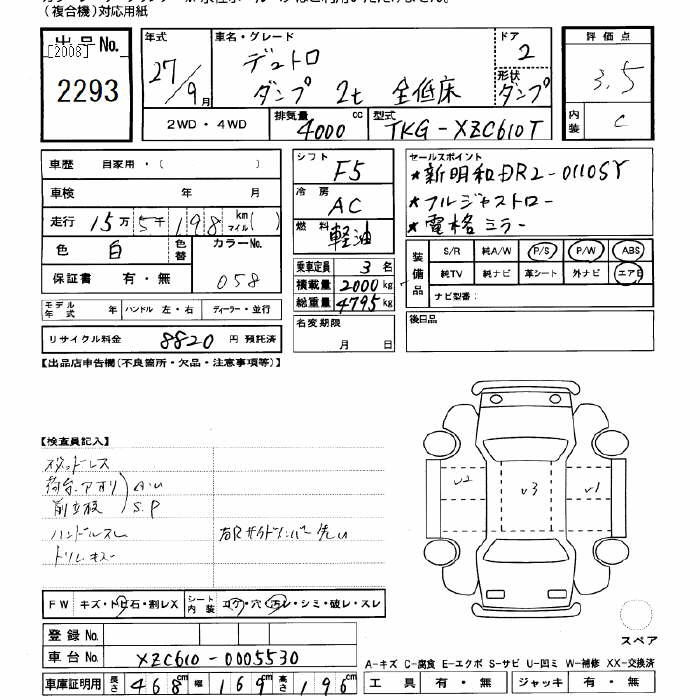 (複合機)対応用紙
出品No.
[2008]
2293
年式
27/9月
車名・グレード
デュトロ
ダンプ 2t 全低床
ドア
2
形状
ダンプ
評価点
3.5
内装
C
2WD・4WD
排気量
4000cc
型式
TKG-XZC610T
車歴 自家用・( )
車検 年 月
走行 15万5千198km マイル( )
色 白
色替
カラーNo.
058
保証書 有・無
モデル年式 年 ハンドル 左・右 ディーラー・並行
リサイクル料金 8820円 預託済
シフト
F5
冷房
AC
燃料
軽油
乗車定員 3名
積載量 2000kg
総重量 4795kg
名変期限
月 日
セールスポイント
★新明和DR2-0110SY
★フルジャストロー
★電格ミラー
装備品
S/R 純A/W P/S P/W ABS
純TV 純ナビ 革シート 外ナビ エアB
ナビ型番:
後日品
【出品店申告欄(不良箇所・欠品・注意事項等)】
【検査員記入】
スタッドレス
荷台.アオリ A.U
前立板 S.P
ハンドルスレ
トリムキズー
U2
U3
U1
スペア
FW キズ・トビ石・割レX
シート内装 コゲ・穴・汚レ・シミ・破レ・スレ
登録No.
車台No. XZC610-0005530
車庫証明用 長さ 468cm 幅 169cm 高さ 196cm
A-キズ C-腐食 E-エクボ S-サビ U-凹ミ W-補修 XX-交換済
工具 有・無 ジャッキ 有・無